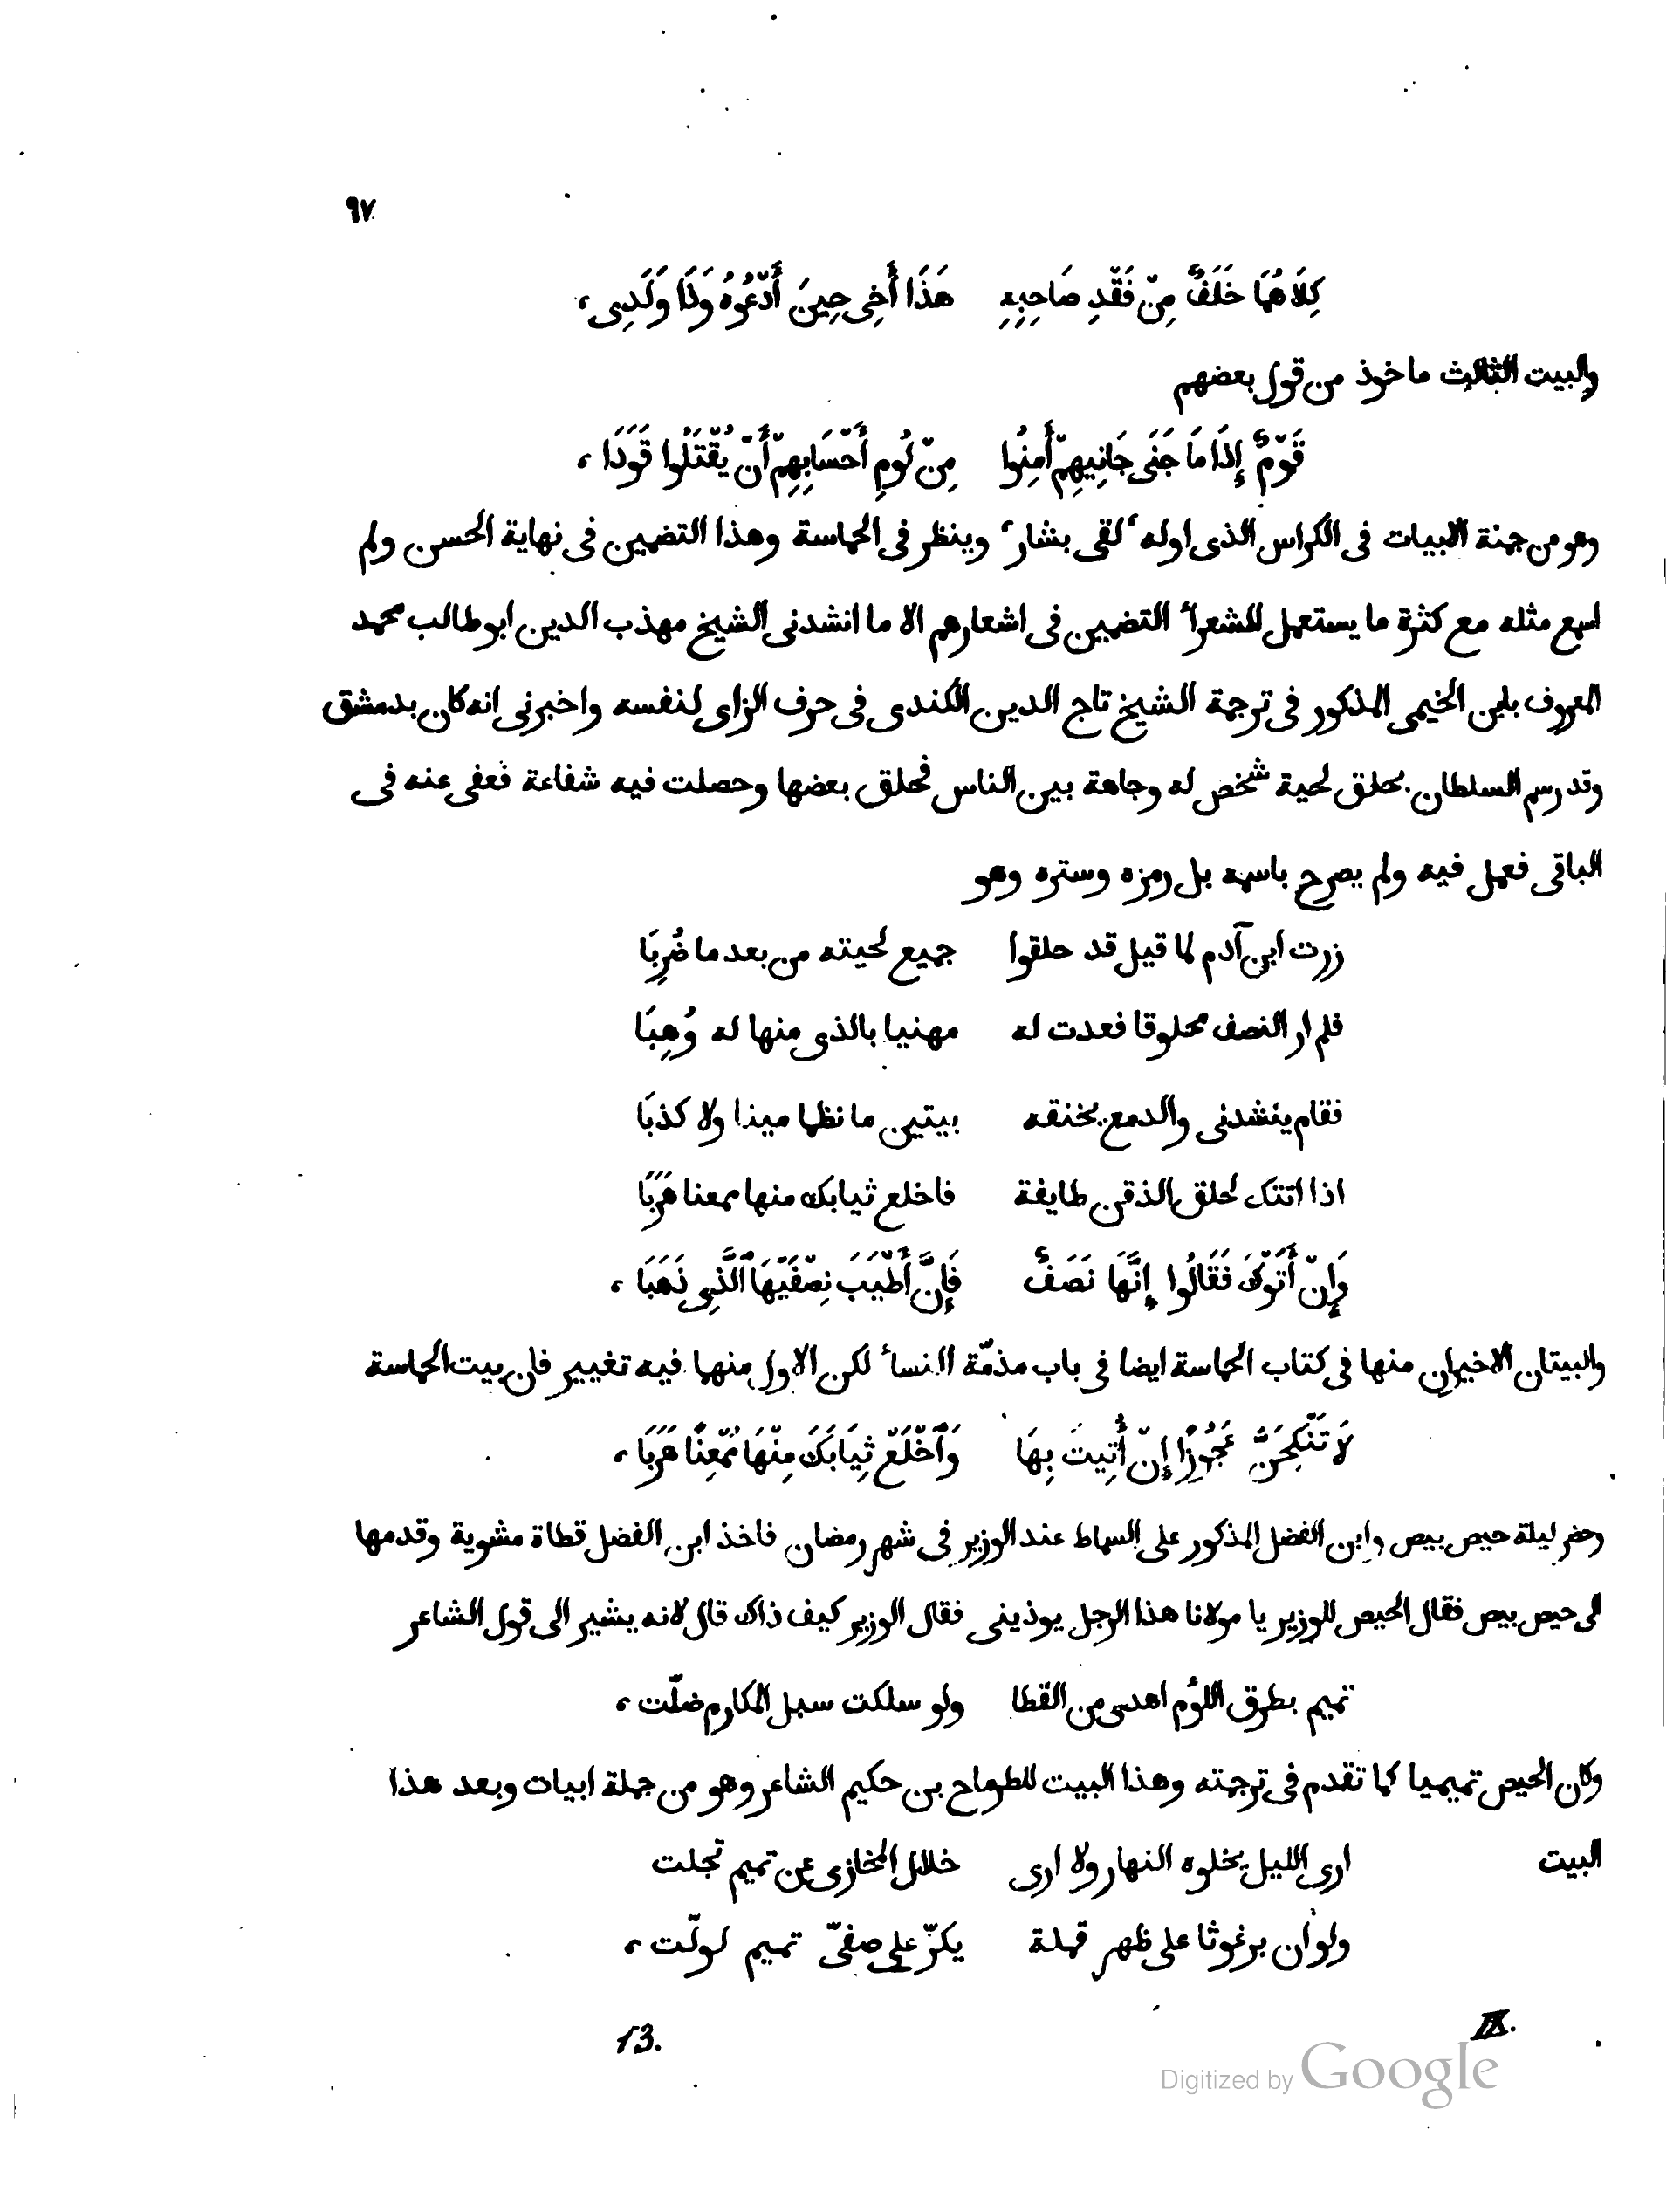 ٩٧
كِلَاهُمَا خَلَفٌ مِنْ فَقْدِ صَاحِبِهِ هَذَا أَخِى حِينَ أَدْعُوهُ وَذَا وَلَدِى،
والبيت الثالث ماخوذ من قول بعضهم
قَوْمٌ إِذَا مَا جَنَى جَانِيهِمْ أَمِنُوا مِنْ لُومِ أَحْسَابِهِمْ أَنْ يُقْتَلُوا قَوَدَا،
وهو من جهنة الابيات فى الكراس الذى اوله ‘لقى بشار‘ وينظر فى الحماسة وهذا التضمين فى نهاية الحسن ولم
اسمع مثله مع كثرة ما يستعمل للشعراء التضمين فى اشعارهم الا ما انشدنى الشيخ مهذب الدين ابو طالب محمد
المعروف بابن الخيمى المذكور فى ترجمة الشيخ تاج الدين الكندى فى حرف الزاى لنفسه واخبرنى انه كان بدمشق
وقد رسم السلطان بحلق لحية شخص له وجاهة بين الناس فحلق بعضها وحصلت فيه شفاعة فعفى عنه فى
الباقى فعمل فيه ولم يصرح باسمه بل رمزه وستره وهو
زرت ابن آدم لما قيل قد حلقوا جميع لحيته من بعد ما ضُرِبَا
فلم ار النصف محلوقا فعدت له مهنيا بالذى منها له وُهِبَا
فقام ينشدنى والدمع يخنقه بيتين ما نظما مينا ولا كذبَا
اذا اتتك لحلق الذقن طايفة فاخلع ثيابك منها ممعنا هَرَبَا
وَإِنْ أَتَوْكَ فَقَالُوا إِنَّهَا نَصَفٌ فَإِنَّ أَطْيَبَ نِصْفَيْهَا ٱلَّذِى ذَهَبَا،
والبيتان الاخيران منها فى كتاب الحماسة ايضا فى باب مذمّة النساء لكن الاول منهما فيه تغيير فان بيت الحماسة
لَا تَنْكِحَنَّ عَجُوزًا إِنْ أُتِيتَ بِهَا وَٱخْلَعْ ثِيَابَكَ مِنْهَا مُمْعِنًا هَرَبَا،
وحضر ليلة حيص بيص وابن الفضل المذكور على السماط عند الوزير فى شهر رمضان فاخذ ابن الفضل قطاة مشوية وقدمها
الى حيص بيص فقال الحيص للوزير يا مولانا هذا الرجل يوذينى فقال الوزير كيف ذاك قال لانه يشير الى قول الشاعر
تميم بطرق اللؤم اهدى من القطا ولو سلكت سبل المكارم ضلّت،
وكان الحيص تميميا كما تقدم فى ترجمته وهذا البيت للطرماح بن حكيم الشاعر وهو من جملة ابيات وبعد هذا
البيت ارى الليل يخلوه النهار ولا ارى خلال المخازى عن تميم تجلت
ولو ان برغوثا على ظهر قملة يكرّ على صفىّ تميم لولّت،
IX. 13.
Digitized by Google